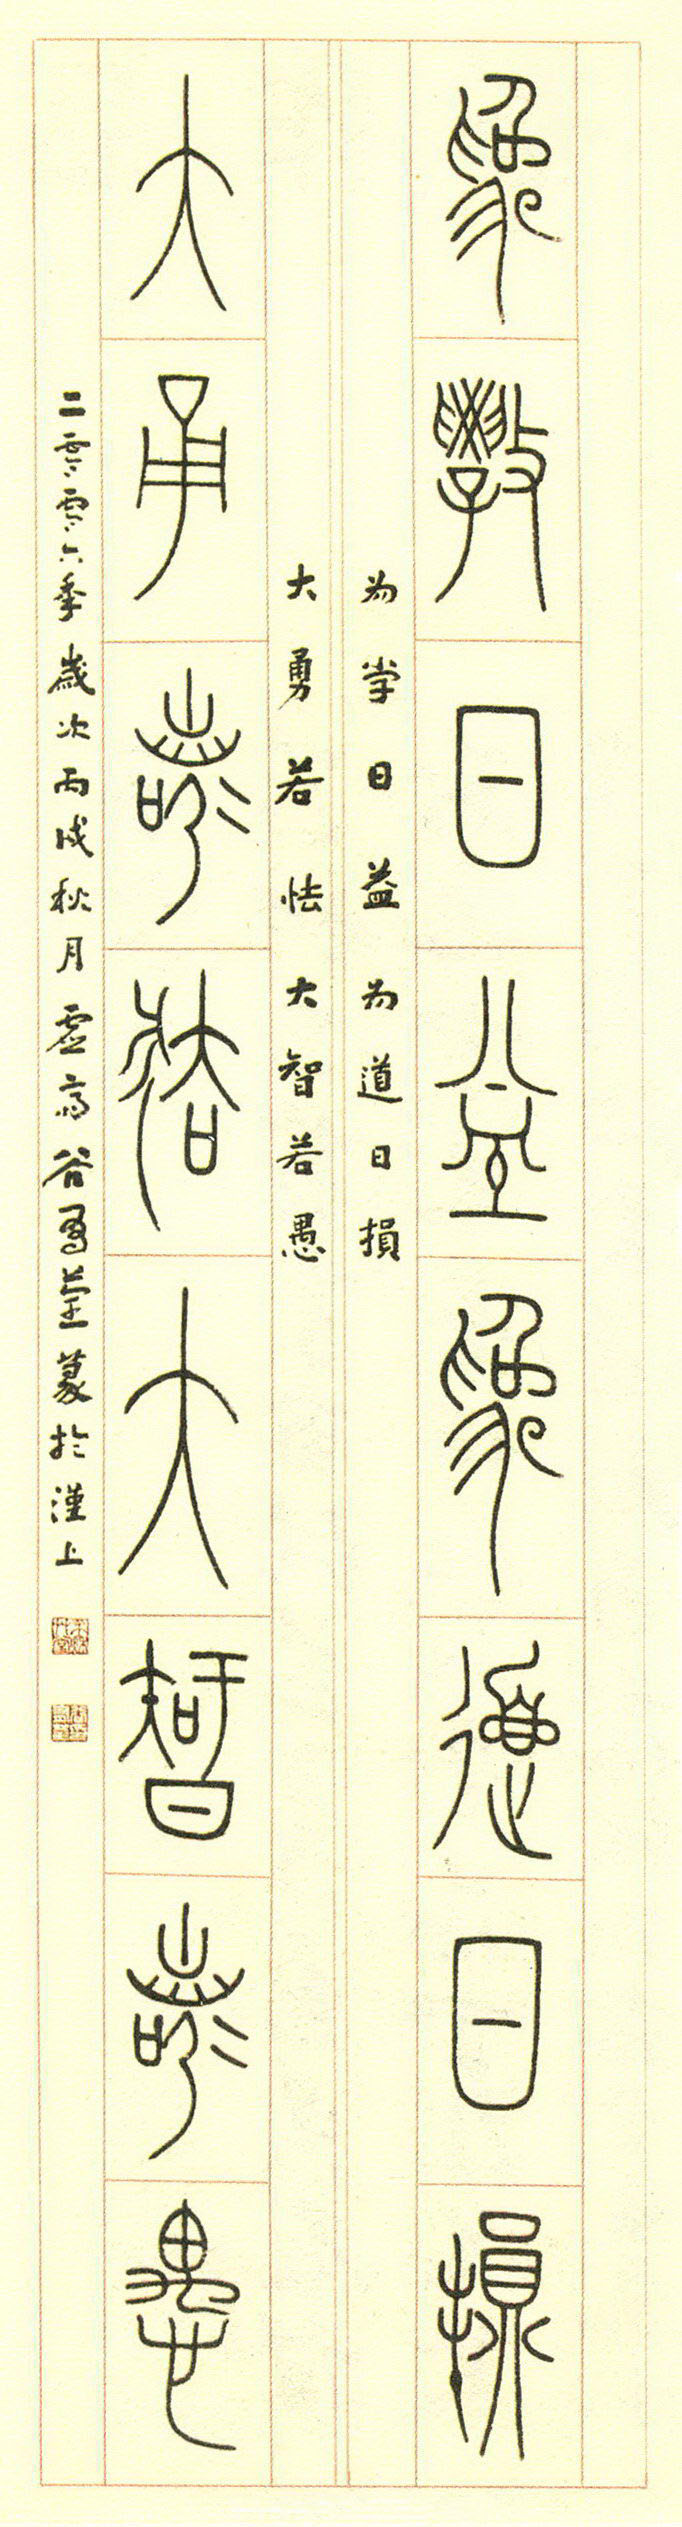 為學日益為道日損
为学日益为道日損
大勇若怯大智若愚
大勇若怯大智若愚
二零零六季歲次丙戌秋月虛高谷篆於上